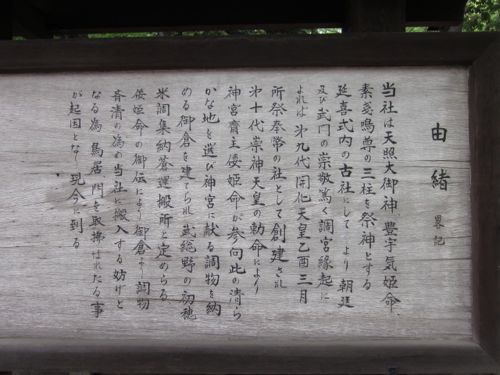 由緒 畧記
当社は天照大御神 豊宇気姫命、
素戔嗚尊の三柱を祭神とする
延喜式内の古社にして より朝廷
及び武門の崇敬篤く調宮縁起に
よれば 第九代開化天皇乙酉三月
所祭奉幣の社として創建され
第十代崇神天皇の勅命により
神宮斎主倭姫命が参向此の清ら
かな地を選び神宮に献る調物を納
める御倉を建てられ武総野の初穂
米調集納蒼運搬所と定めらる
倭姫命の御伝により御倉より調物
斉清の為め当社に搬入する妨げと
なる為鳥居 門を取拂はれたる事
が起因となり現今に到る